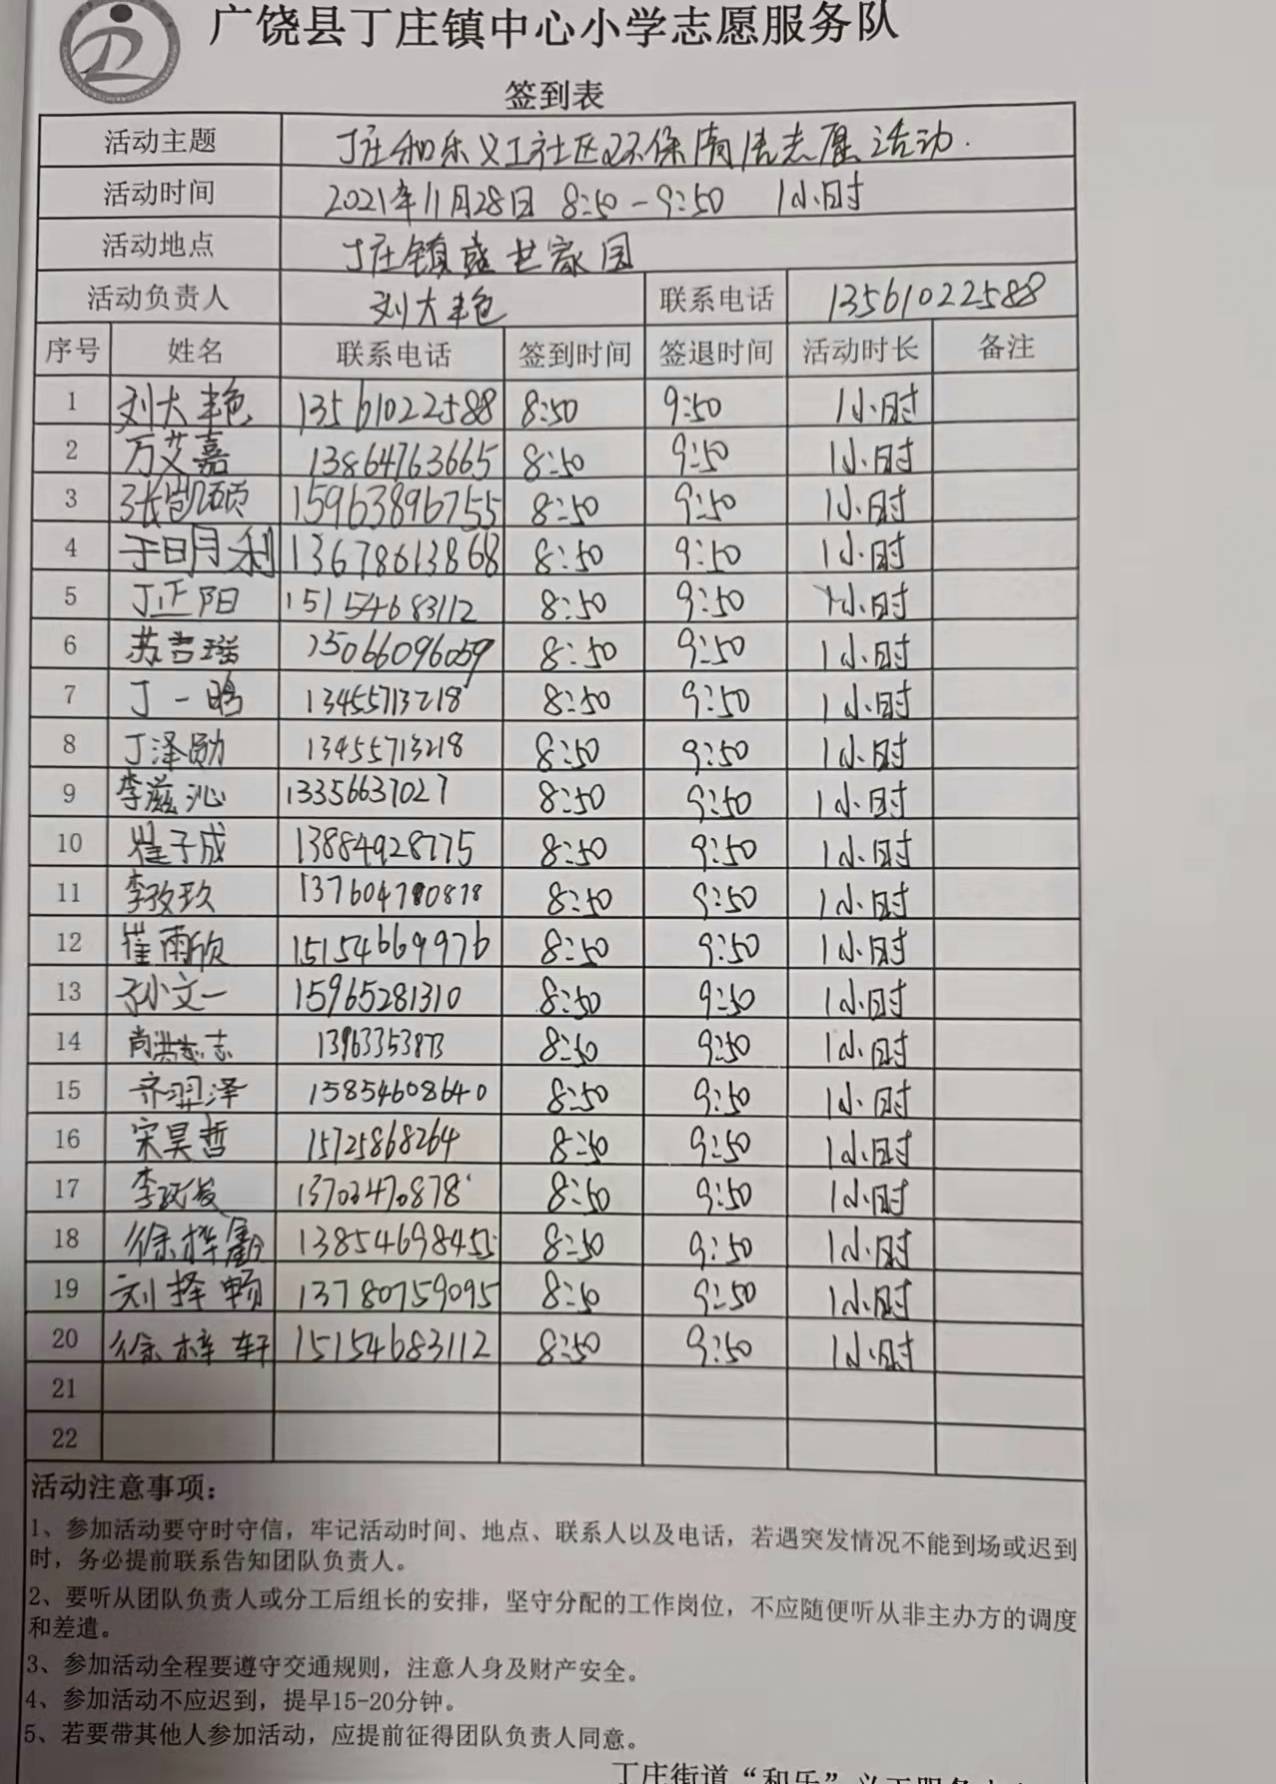 广饶县丁庄镇中心小学志愿服务队
签到表
活动主题 丁庄和乐义工社区环保清洁志愿活动.
活动时间 2021年11月28日 8:50-9:50 1小时
活动地点 丁庄镇盛世家园
活动负责人 刘大艳 联系电话 13561022588
序号 姓名 联系电话 签到时间 签退时间 活动时长 备注
1 刘大艳 13561022588 8:50 9:50 1小时
2 万艾嘉 13864763665 8:50 9:50 1小时
3 张凯硕 15963896755 8:50 9:50 1小时
4 于明利 13678613868 8:50 9:50 1小时
5 丁正阳 15154683112 8:50 9:50 1小时
6 苏吉瑶 15066096059 8:50 9:50 1小时
7 丁一 13455713218 8:50 9:50 1小时
8 丁泽勋 13455713218 8:50 9:50 1小时
9 李滋沁 13356637027 8:50 9:50 1小时
10 崔子成 13884928775 8:50 9:50 1小时
11 李玫玖 8:50 9:50 1小时
12 崔雨欣 15154669976 8:50 9:50 1小时
13 孙文一 15965281310 8:50 9:50 1小时
14 尚 志 8:50 9:50 1小时
15 齐羿泽 15854608640 8:50 9:50 1小时
16 宋昊哲 15725868264 8:50 9:50 1小时
17 李 8:50 9:50 1小时
18 徐梓 13854698455 8:50 9:50 1小时
19 刘择畅 13780759095 8:50 9:50 1小时
20 徐梓轩 15154683112 8:50 9:50 1小时
21
22
活动注意事项：
1、参加活动要守时守信，牢记活动时间、地点、联系人以及电话，若遇突发情况不能到场或迟到
时，务必提前联系告知团队负责人。
2、要听从团队负责人或分工后组长的安排，坚守分配的工作岗位，不应随便听从非主办方的调度
和差遣。
3、参加活动全程要遵守交通规则，注意人身及财产安全。
4、参加活动不应迟到，提早15-20分钟。
5、若要带其他人参加活动，应提前征得团队负责人同意。
丁庄街道“和乐”义工服务